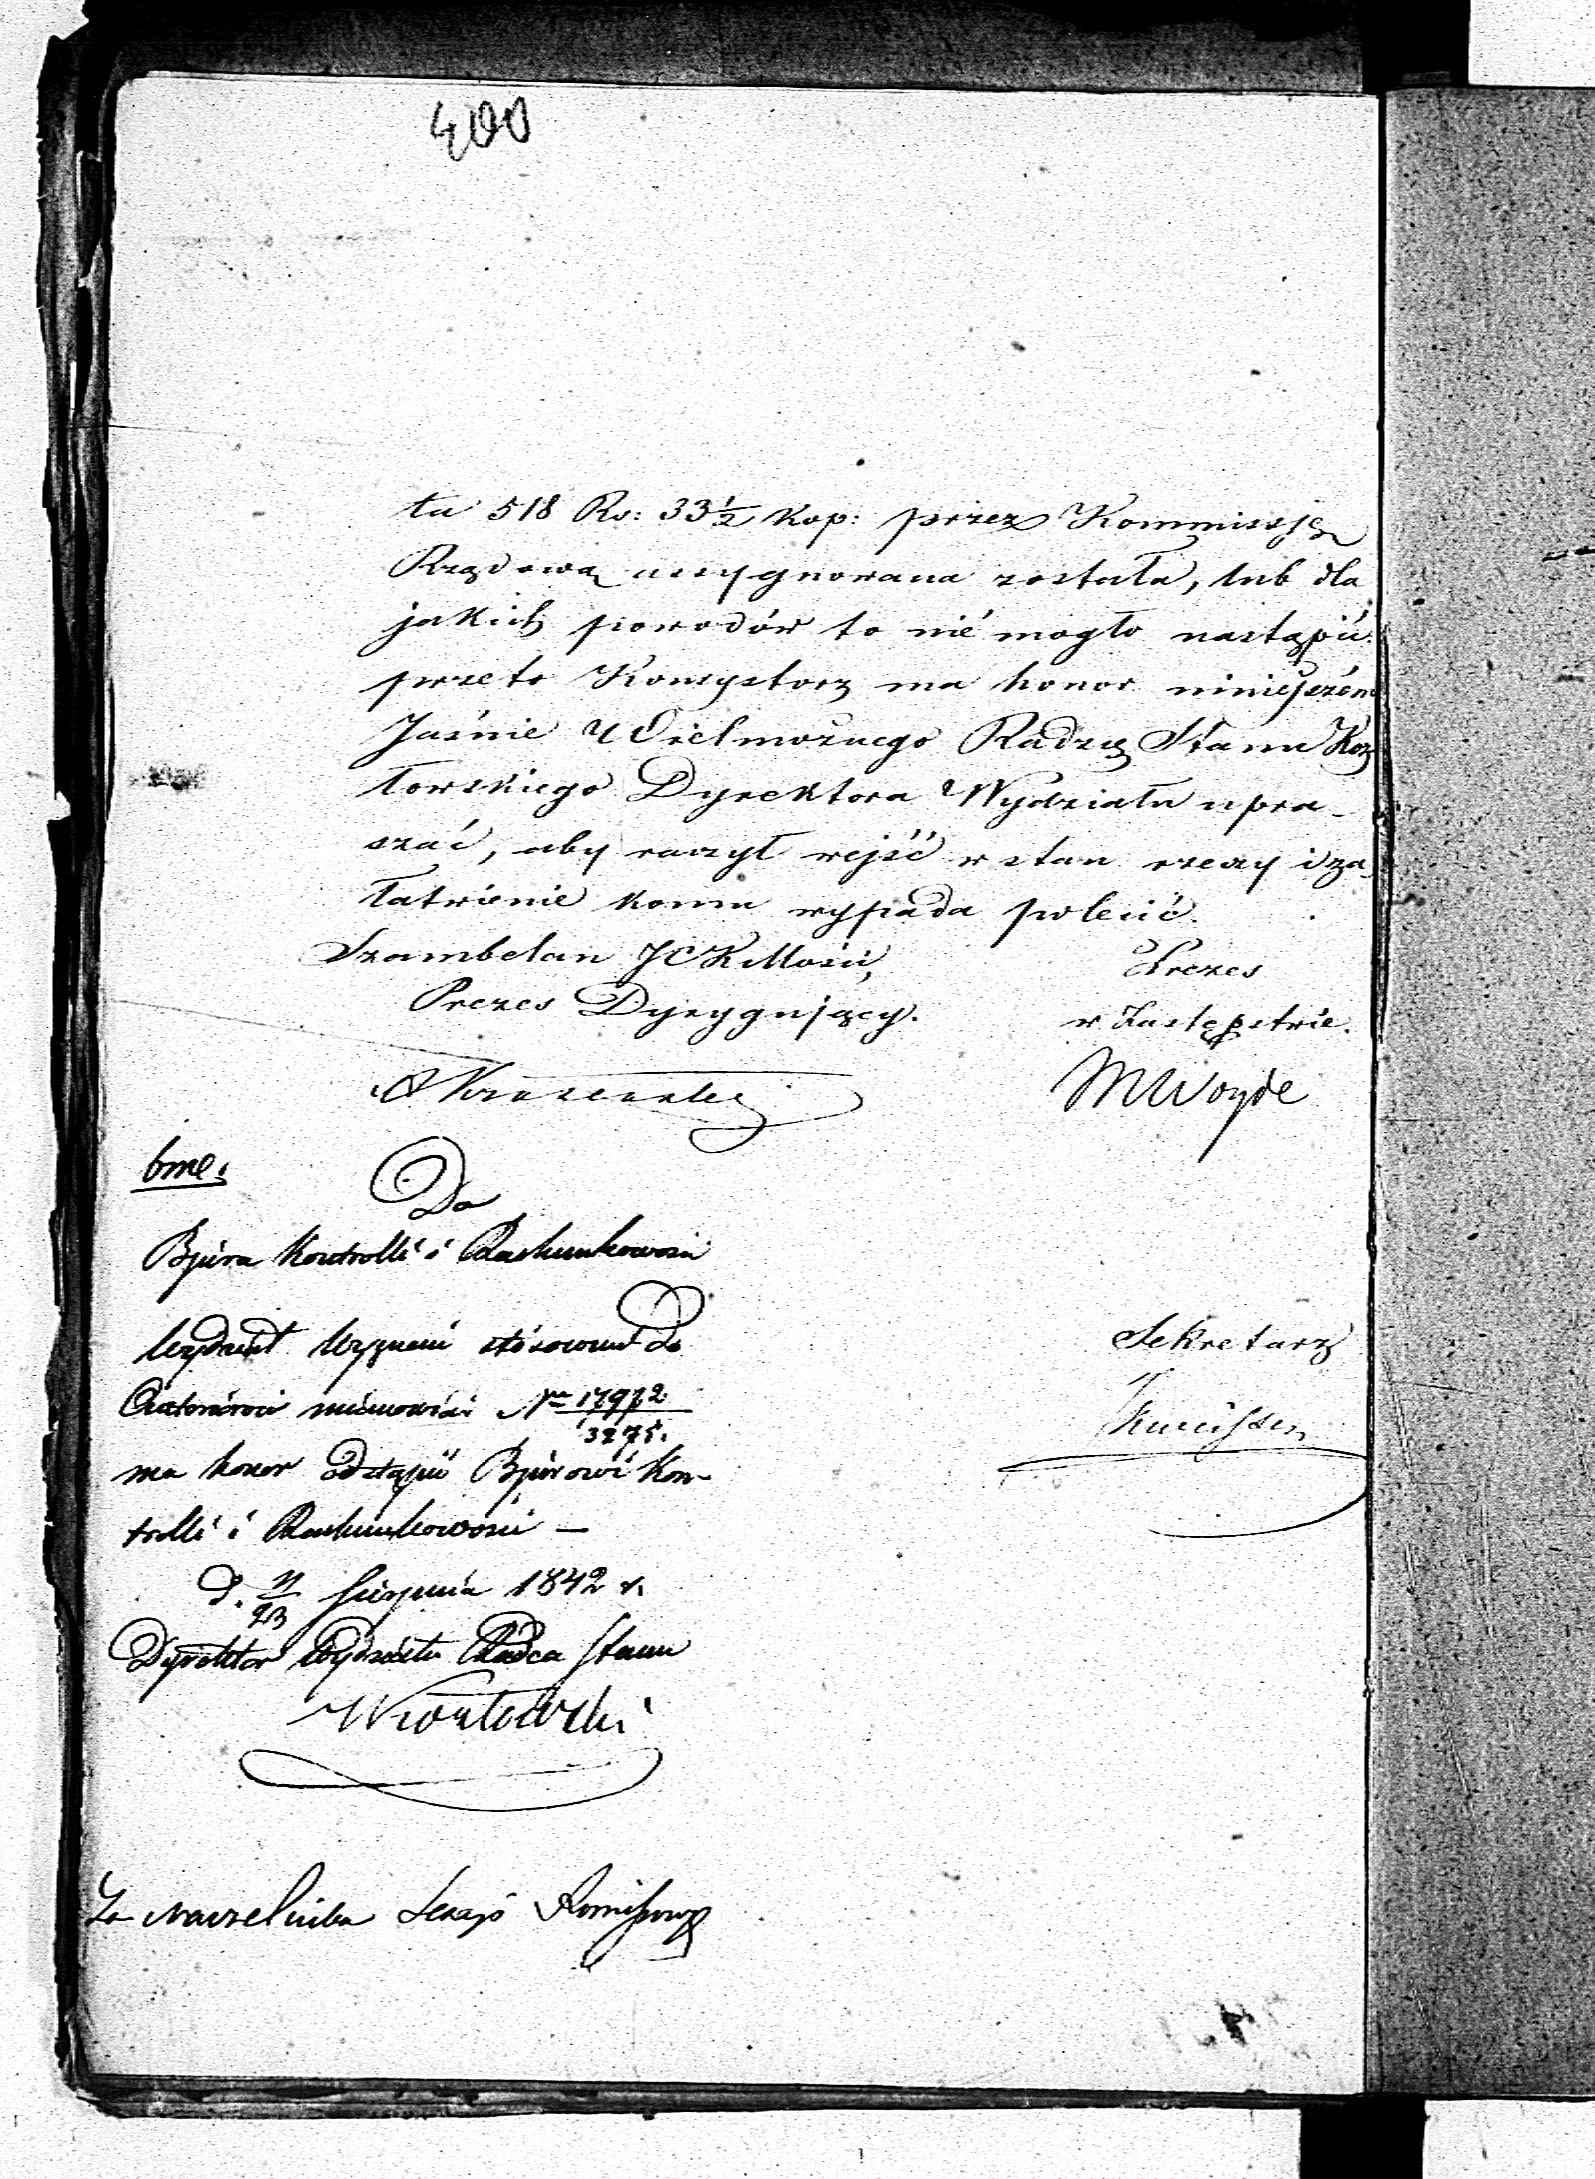 400
ta 518 Rs: 33½ kop: przez Kommissję
Rządową assygnowana została, lub dla
jakich powodów to nié mogło nastąpić.
przeto Konsystorz ma honor niniejszém
Jaśnie Wielmożnego Radzcę Stanu Koz
łowskiego Dyrektora Wydziału upra-
szać, aby raczył wejść w stan rzeczy i za-
łatwienie komu wypada polecić.
Szambelan JCKMości,
Prezes Dyrygujący.
Prezes
w Zastępstwie.
MWoyde
Do
Bjóra Kontrolli i Rachunkowości
Sekretarz
Wydział Wyznań stósownie do
N° 17972/3275.
ma honor odstąpić Bjórowi Kon-
trolli i Rachunkowości —
d. 11/23 Sierpnia 1842 r.
Dyrektor Wydziału Radca Stanu
Kozłowski
Za Naczelnika Sekcji